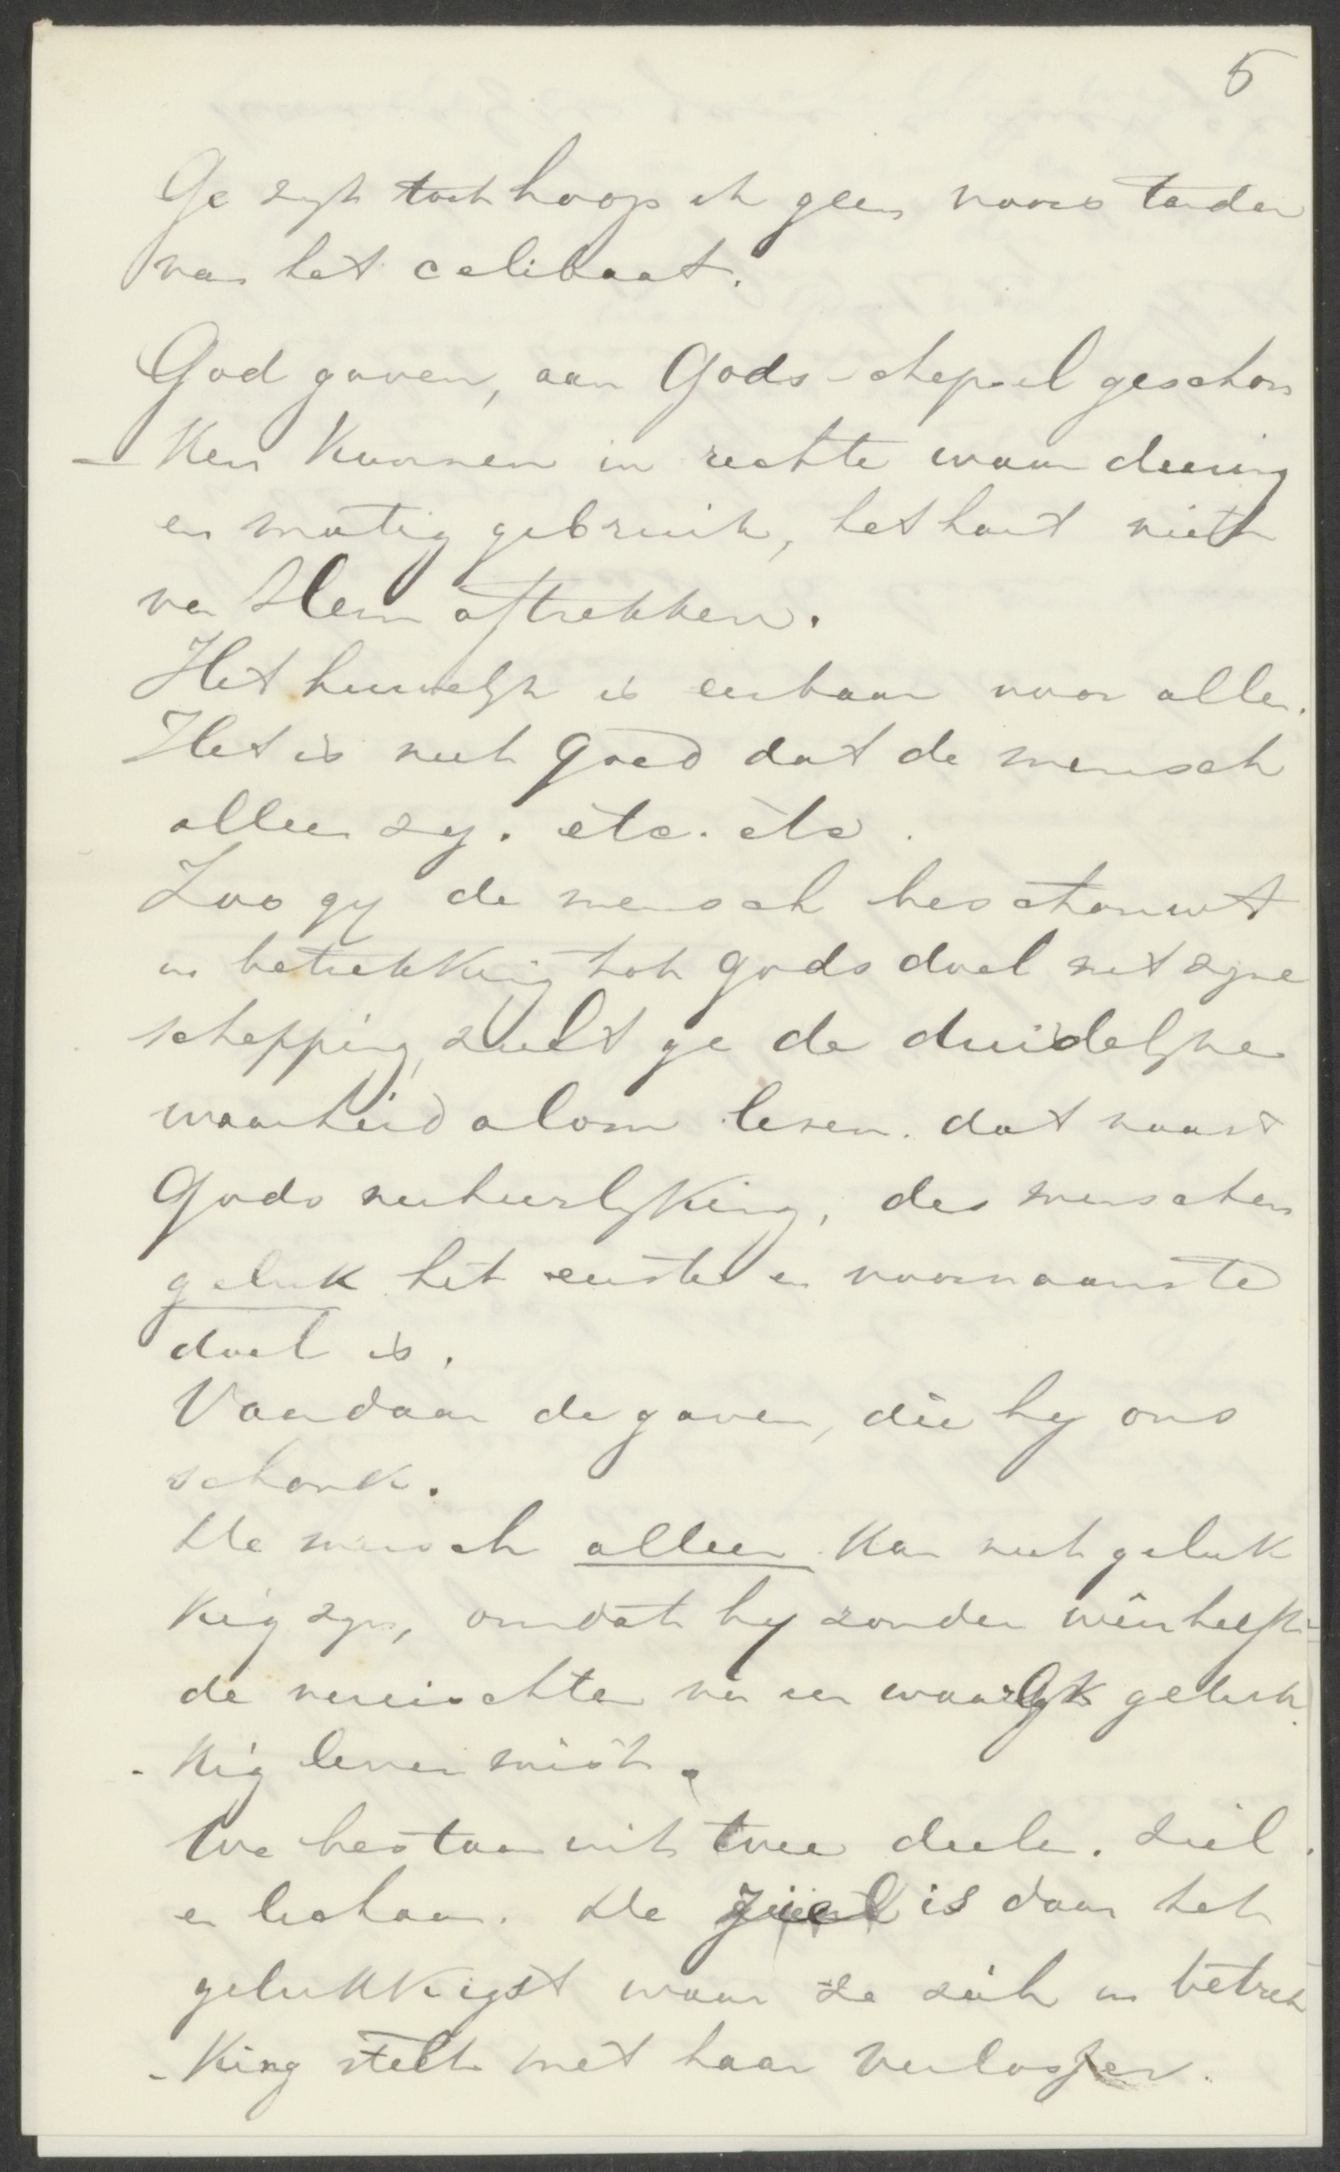 5
Ge zyt toch hoop ik geen voorstander
van het celibaat.
God gaven, aan Gods schepsel geschon
- ken kunnen in rechte waardeering
en matig gebruik, het hart niet
van Hem aftrekken.
Het huwelyk is eerbaar voor allen.
Het is niet goed dat de mensch
alleen zy. etc. etc.
Zoo gy de mensch beschouwt
in betrekking tot gods doel met zyne
schepping, zult ge de duidelyke
waarheid alom lezen. dat naast
Gods verheerlyking, des menschen
geluk het eerste en voornaamste
doel is.
Vandaar de gaven, die hy ons
schonk.
De mensch alleen kan niet geluk
kig zyn, omdat hy zonder wederhelft
de vereischten van een waarlyk geluk
- kig leven mist.
We bestaan uit twee deelen. Ziel
en lichaam. De ziel is daar het
gelukkigst waar ze zich in betrek
- king stelt met haar Verlosser.